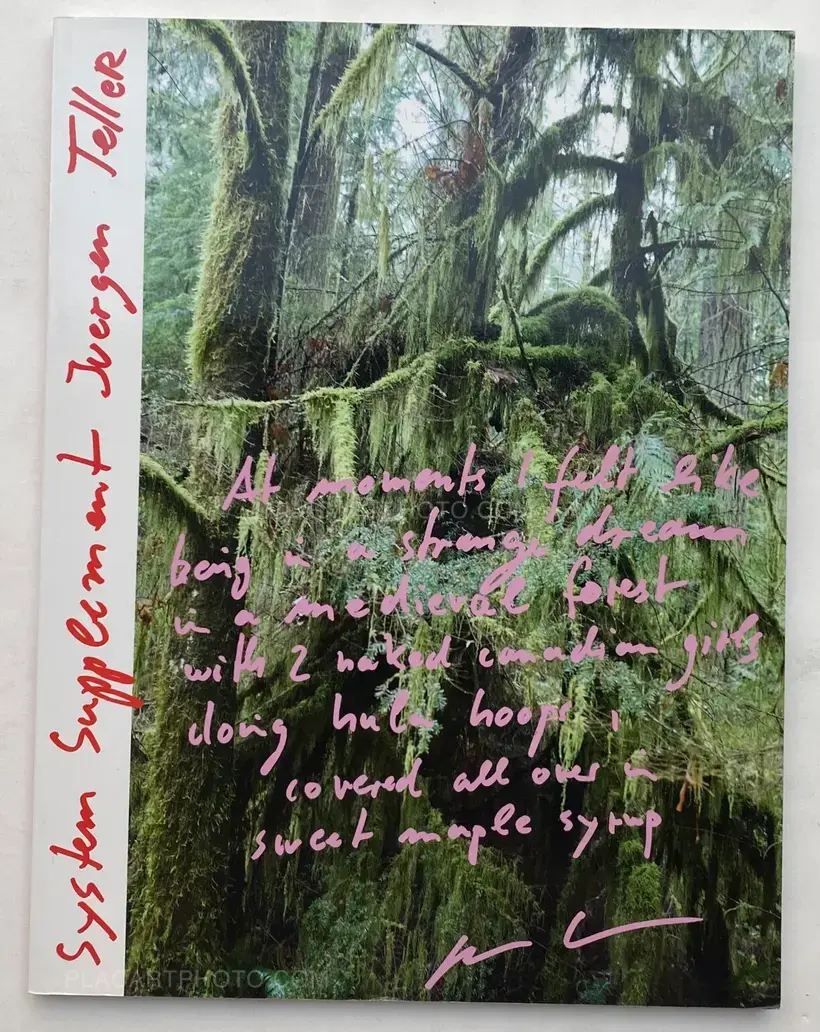 System Supplement Juergen Teller
At moments I felt like
being in a strange dream
in a medieval forest
with 2 naked canadian girls
doing hula hoops,
covered all over in
sweet maple syrup
PLACARTPHOTO.COM